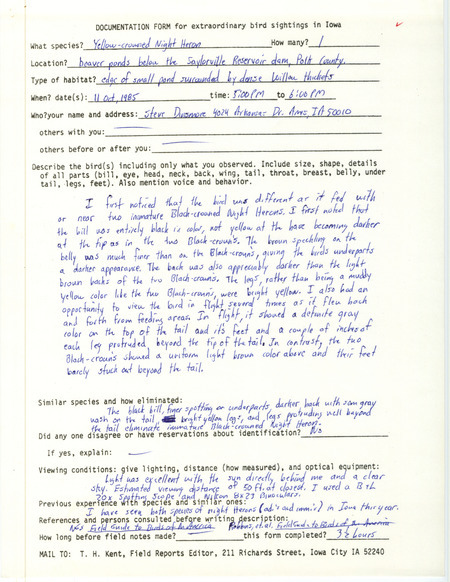 DOCUMENTATION FORM for extraordinary bird sightings in Iowa
What species? Yellow-crowned Night Heron How many? 1
Location? beaver ponds below the Saylorville Reservoir dam, Polk County.
Type of habitat? edge of small pond surrounded by dense willow thickets
When? date(s): 11 Oct, 1985 time: 5:00 PM to 6:00 PM
Who? your name and address: Steve Dinsmore 4024 Arkansas Dr. Ames, IA 50010
others with you:
others before or after you:
Describe the bird(s) including only what you observed. Include size, shape, details
of all parts (bill, eye, head, neck, back, wing, tail, throat, breast, belly, under
tail, legs, feet). Also mention voice and behavior.
I first noticed that the bird was different as it fed with
or near two immature Black-crowned Night Herons. I first noted that
the bill was entirely black in color, not yellow at the base becoming darker
at the tip as in the two Black-crowns. The brown speckling on the
belly was much finer than on the Black-crowns, giving the birds underparts
a darker appearance. The back was also appreciably darker than the light
brown backs of the two Black-crowns. The legs, rather than being a muddy
yellow color like the two Black-crowns, were bright yellow. I also had an
opportunity to view the bird in flight several times as it flew back
and forth from feeding areas. In flight, it showed a definite gray
color on the top of the tail and it's feet and a couple of inches of
each leg protruded beyond the tip of the tail. In contrast, the two
Black-crowns showed a uniform light brown color above and their feet
barely stuck out beyond the tail.
Similar species and how eliminated:
The black bill, finer spotting on underparts, darker back with some gray
wash on the tail, bright yellow legs, and legs protruding well beyond
the tail eliminate immature Black-crowned Night Heron.
Did any one disagree or have reservations about identification? No
If yes, explain:
Viewing conditions: give lighting, distance (how measured), and optical equipment:
Light was excellent with the sun directly behind me and a clear
sky. Estimated viewing distance of 50 ft. at closest. I used a B+L
20x Spotting Scope and Nikon 8x23 Binoculars.
Previous experience with species and similar ones:
I have seen both species of night Herons (ad's and imm's) in Iowa this year.
References and persons consulted before writing description:
NGS Field Guide to Birds of N. America Robbins, et al. Field Guide to Birds of N. America
How long before field notes made? this form completed? 3½ hours
MAIL TO: T. H. Kent, Field Reports Editor, 211 Richards Street, Iowa City IA 52240